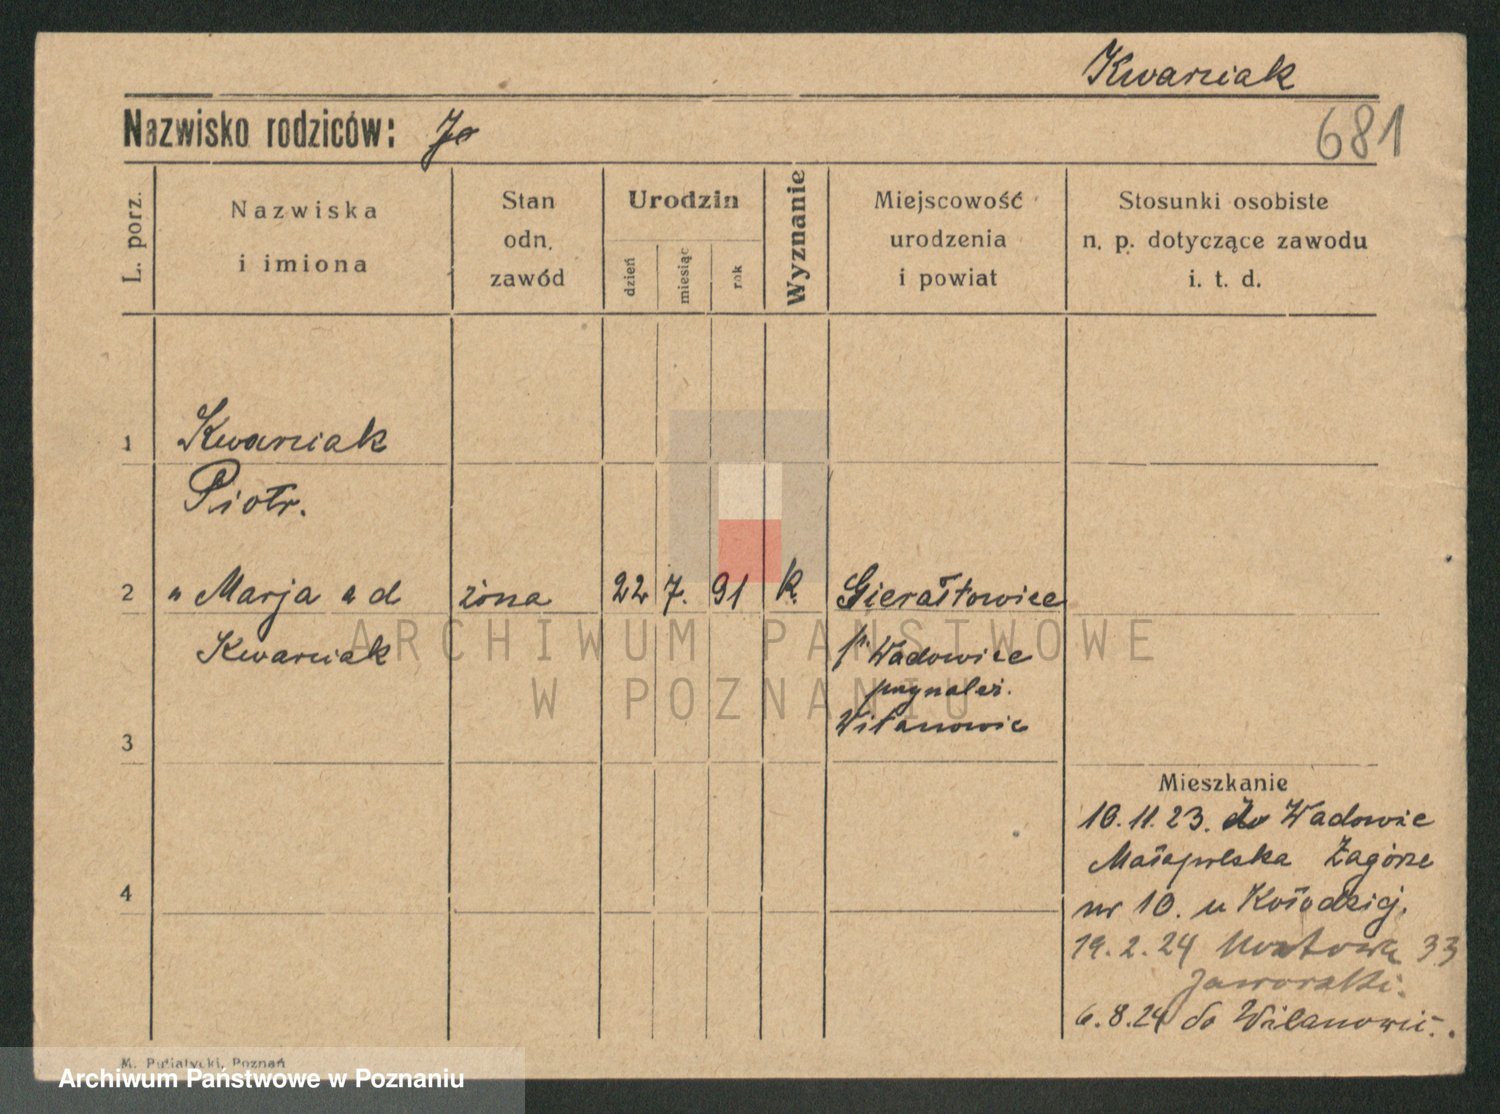 Kwarciak
Nazwisko rodziców:
681
L. porz.
Nazwiska
i imiona
Stan
odn.
zawód
Urodzin
dzień
miesiąc
rok
Wyznanie
Miejscowość
urodzenia
i powiat
Stosunki osobiste
n. p. dotyczące zawodu
i. t. d.
1
Kwarciak
Piotr.
2
" Marja " d żona 22 7. 91 k. Gierałtowice
Kwarciak
p. Wadowice
przynależ.
Witanowic
3
Mieszkanie
10.11.23. do Wadowic
Małopolska Zagórze
nr 10. u Kołodziej.
4
19.2.24 Mostowa 33
Jaworski.
6.8.24 do Witanowic.
M. Putiatycki, Poznań
ARCHIWUM PAŃSTWOWE
W POZNANIU
Archiwum Państwowe w Poznaniu